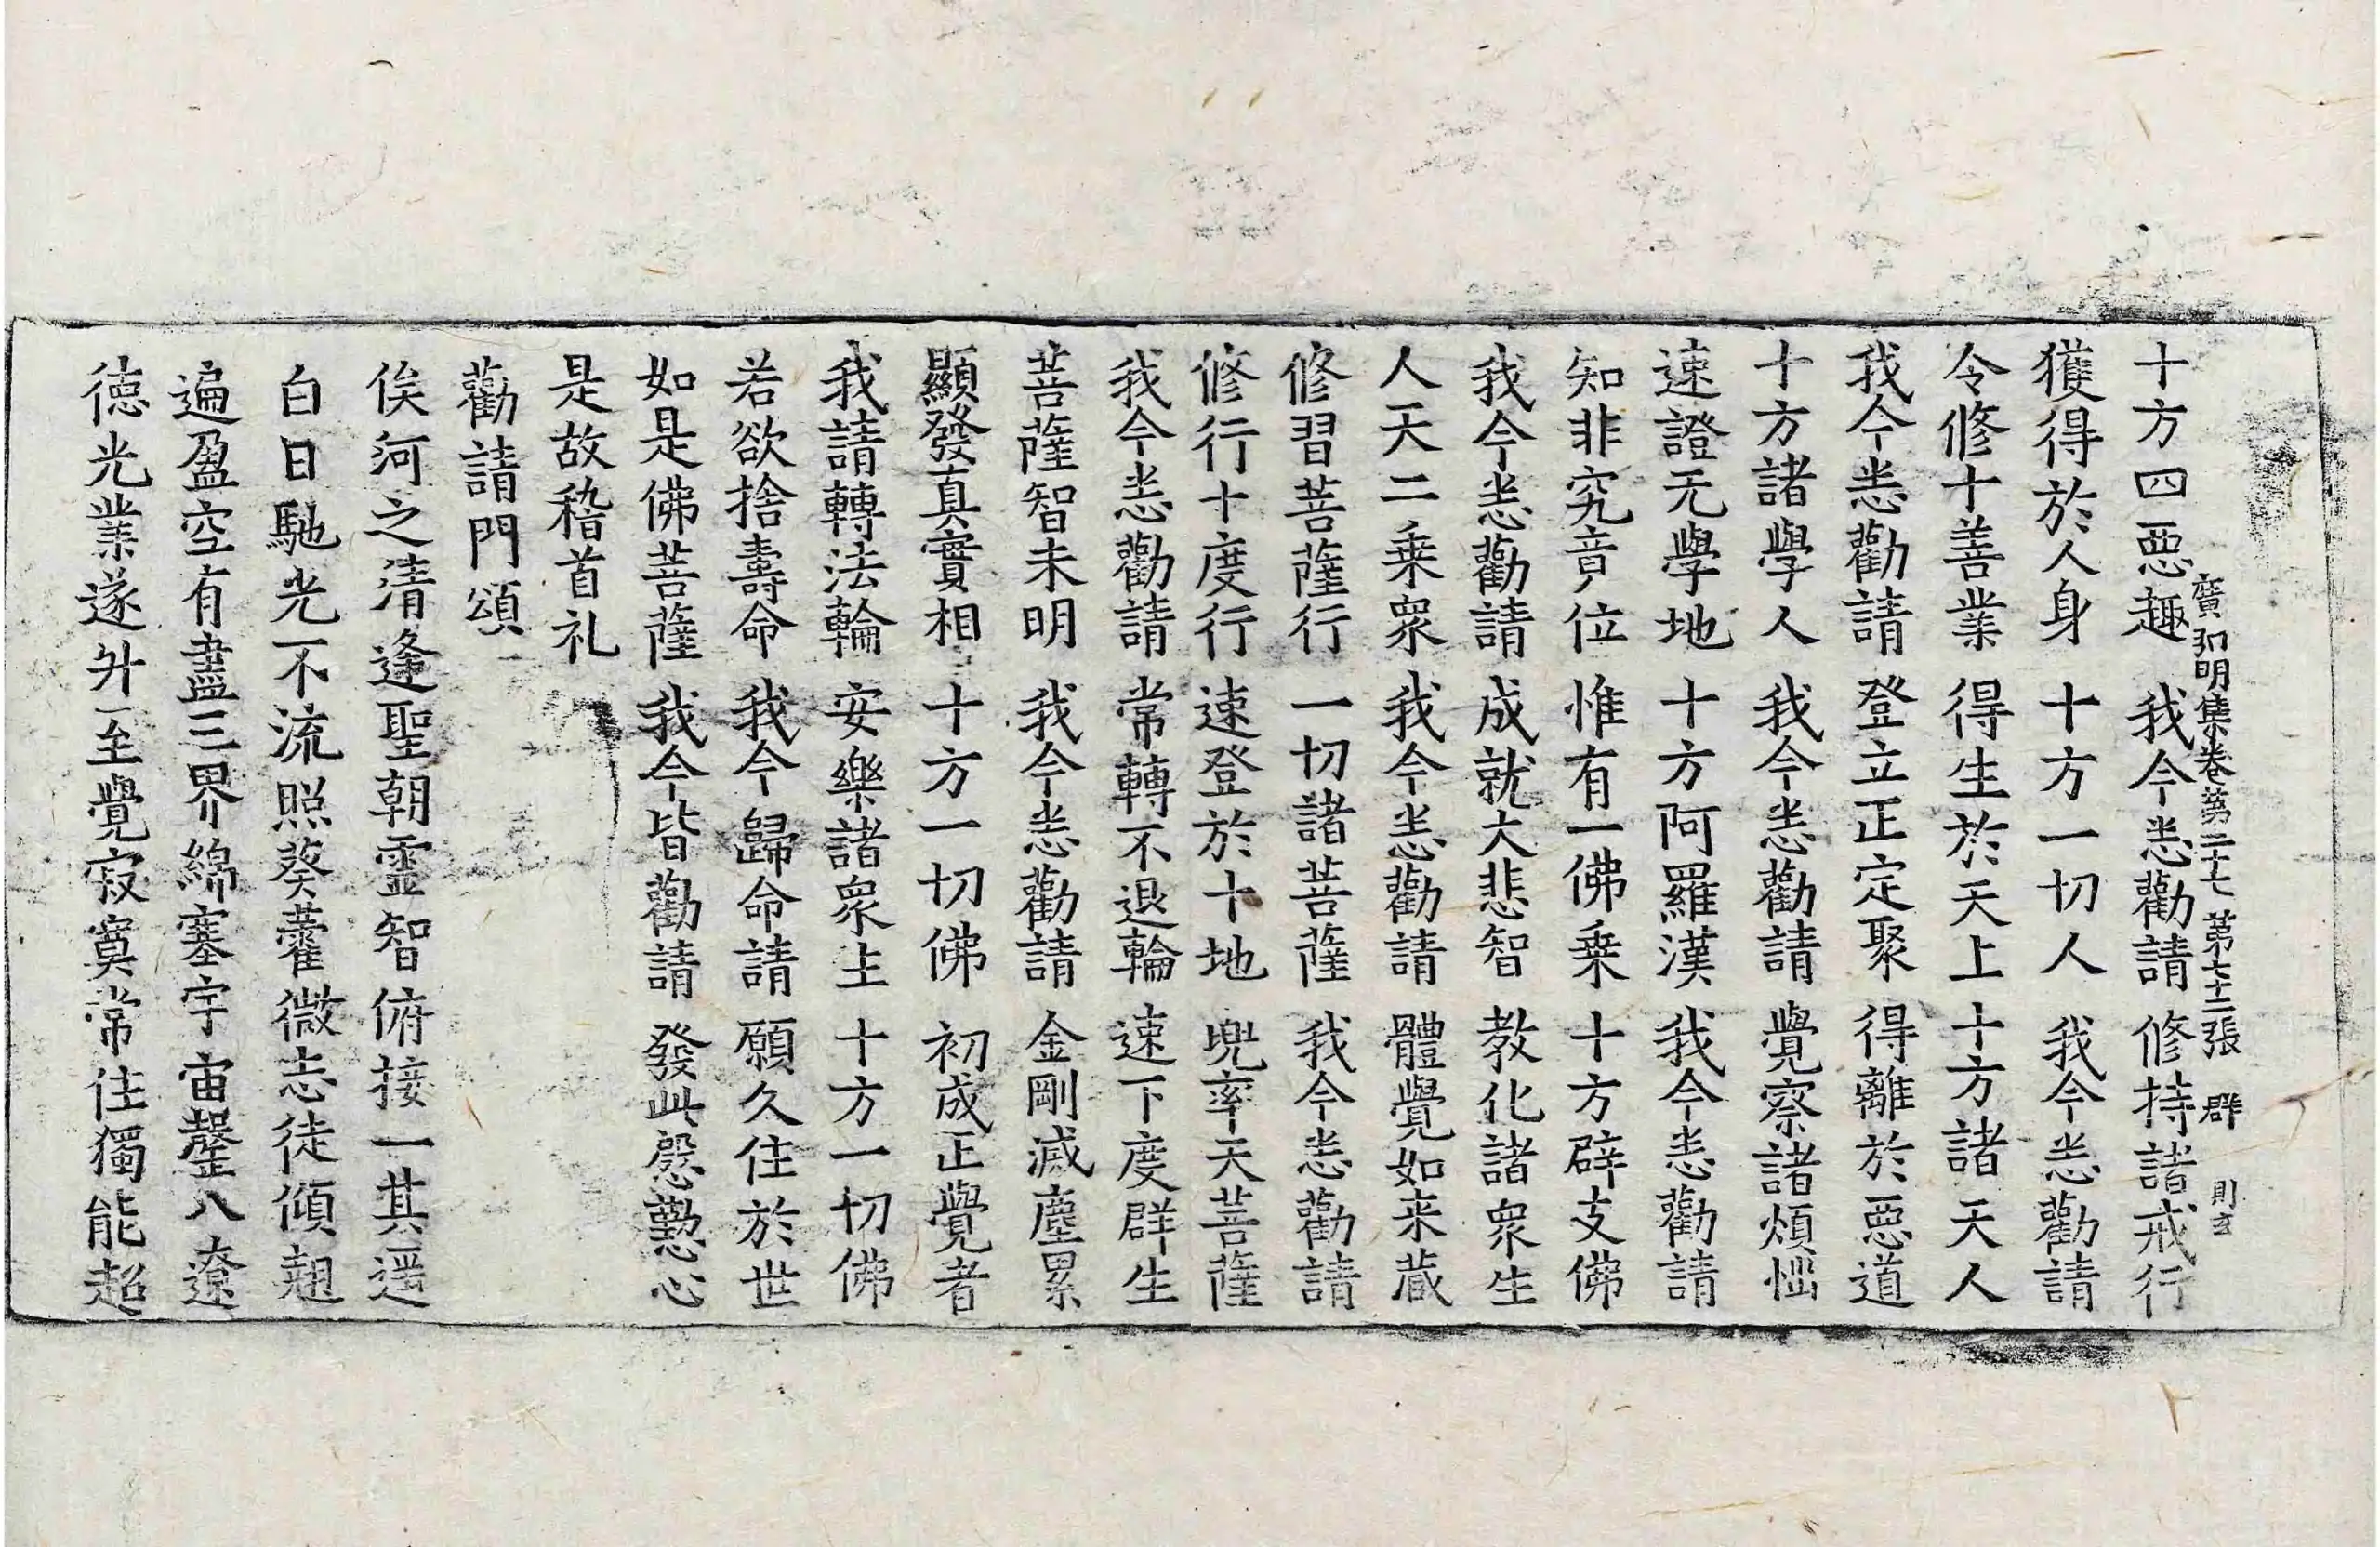 廣弘明集卷第二十七 第七十二張 群 則玄
十方四惡趣 我今悉勸請 修持諸戒行
獲得於人身 十方一切人 我今悉勸請
令修十善業 得生於天上 十方諸天人
我今悉勸請 登立正定聚 得離於惡道
十方諸學人 我今悉勸請 覺察諸煩惱
速證无學地 十方阿羅漢 我今悉勸請
知非究竟位 惟有一佛乗 十方辟支佛
我今悉勸請 成就大悲智 教化諸衆生
人天二乗衆 我今悉勸請 體覺如来蔵
修習菩薩行 一切諸菩薩 我今悉勸請
修行十度行 速登於十地 兜率天菩薩
我今悉勸請 常轉不退輪 速下度群生
菩薩智未明 我今悉勸請 金剛滅塵累
顯發真實相 十方一切佛 初成正覺者
我請轉法輪 安樂諸衆上 十方一切佛
若欲捨壽命 我今歸命請 願久住於世
如是佛菩薩 我今皆勸請 發此慇懃心
是故稽首礼
勸請門頌
俟河之清逢聖朝靈智俯接一其遥
白日馳光不流照葵藿微志徒傾翹
遍盈空有盡三界綿塞宇宙罄八遼
徳光業遂升至覺寂寞常住獨能超